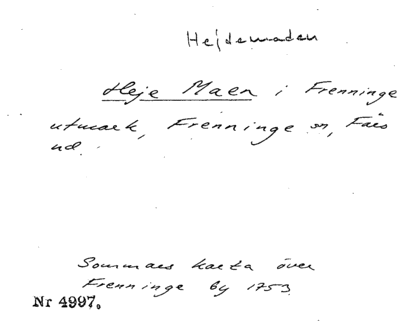 Hejdemaden
Heje Maen i Frenninge
utmark, Frenninge sn, Färs
hd.
Sommars karta över
Frenninge by 1753.
Nr 4997.